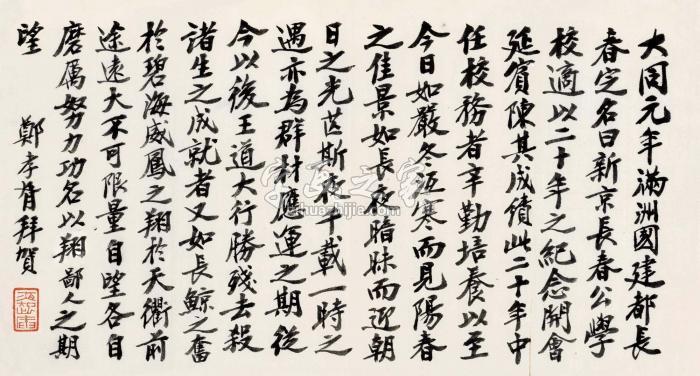 大同元年滿洲國建都長
春定名曰新京長春公學
校適以二十年之紀念開會
延賓陳其成績此二十年中
任校務者辛勤培養以至
今日如嚴冬沍寒而見陽春
之佳景如長夜暗昧而迎朝
日之光茫斯夜千載一時之
遇亦為群材應運之期從
今以後王道大行勝殘去殺
諸生之成就者又如長鯨之奮
於碧海威鳳之翔於天衢前
途遠大不可限量自望各自
磨厲努力功名以翔鄙人之期
望
鄭孝胥拜賀
字画之家
zihuazhijia.com